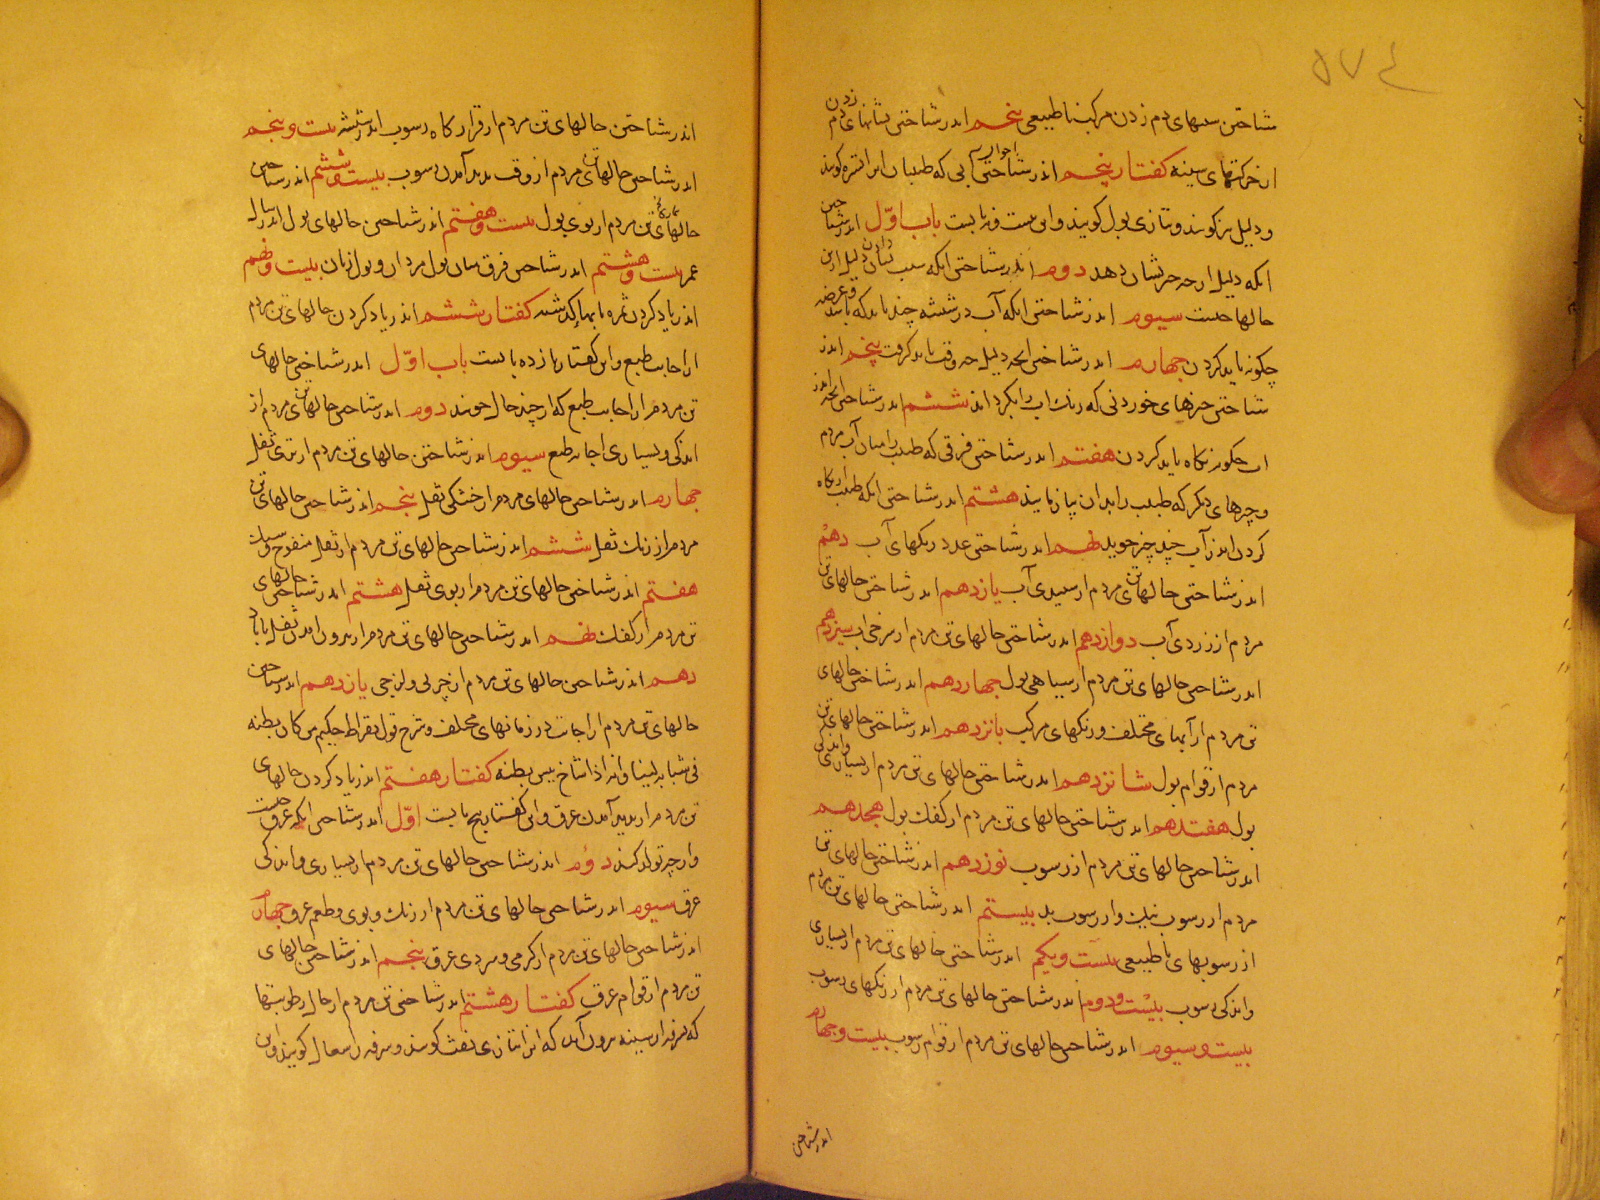 ٥٧٤
شناختن سببهای دم زدن مرکب ناطبیعی پنجم اندر شناختن نشانهای دم زدن
از حرکتهای سینه کفتار پنجم اندر شناختن احوال آبی که طبیبان انرا تفسره کویند
و دلیل نیز کویند و بتازی بول کویند و این بیست و نه بابست باب اوّل اندر شناختن
انکه دلیل از چه چیز نشان دهد دوم اندر شناختن انکه سبب نشان دادن دلیل ازین
حالها چیست سیوم اندر شناختن انکه آب در شیشه چند باید که باشد و عرضه
چکونه باید کردن چهارم اندر شناختن انکه دلیل چه وقت باید کرفت پنجم اندر
شناختن چیزهای خوردنی که رنک اب را بکرداند ششم اندر شناختن انکه اندر
اب چکونه نکاه باید کردن هفتم اندر شناختن فرقی که طبیب را میان آب مردم
و چیزهای دیکر که طبیب را بدان بیازمایند هشتم اندر شناختن انکه طبیب از نکاه
کردن اندر آب چند چیز جوید نهم اندر شناختن عدد رنکهای آب دهم
اندر شناختن حالهای تن مردم از سپیدی آب یازدهم اندر شناختن حالهای تن
مردم از زردی آب دوازدهم اندر شناختن حالهای تن مردم از سرخی اب سیزدهم
اندر شناختن حالهای تن مردم از سیاهی بول چهاردهم اندر شناختن حالهای
تن مردم از آبهای مختلف و رنکهای مرکب پانزدهم اندر شناختن حالهای تن
مردم از قوام بول شانزدهم اندر شناختن حالهای تن مردم از بسیاری و اندکی
بول هفتدهم اندر شناختن حالهای تن مردم از کفک بول هجدهم
اندر شناختن حالهای تن مردم از رسوب نوزدهم اندر شناختن حالهای تن
مردم از رسوب نیک و از رسوب بد بیستم اندر شناختن حالهای تن مردم
از رسوبهای ناطبیعی بیست و یکم اندر شناختن حالهای تن مردم از بسیاری
و اندکی رسوب بیست و دوم اندر شناختن حالهای تن مردم از رنکهای رسوب
بیست و سیوم اندر شناختن حالهای تن مردم از قوام رسوب بیست و چهارم
اندر شناختن
اندر شناختن حالهای تن مردم از قرارکاه رسوب اندر شیشه بیست و پنجم
اندر شناختن حالهای تن مردم از وقت پدید آمدن رسوب بیست و ششم اندر شناختن
حالهای تن مردم از بوی بول بیست و هفتم اندر شناختن حالهای بول اندر سال
عمر بیست و هشتم اندر شناختن فرق میان بول مردان و بول زنان بیست و نهم
اندر یاد کردن ثمره بابها کذشته کفتار ششم اندر یاد کردن حالهای تن مردم
از اجابت طبع و این کفتار یازده بابست باب اوّل اندر شناختن حالهای
تن مردم از اجابت طبع که از چند حال جویند دوم اندر شناختن حالهای تن مردم از
اندکی و بسیاری اجابت طبع سیوم اندر شناختن حالهای تن مردم از تری ثفل
چهارم اندر شناختن حالهای مردم از خشکی ثفل پنجم اندر شناختن حالهای تن
مردم از رنک ثفل ششم اندر شناختن حالهای تن مردم از ثفل منفوخ و سبک
هفتم اندر شناختن حالهای تن مردم از بوی ثفل هشتم اندر شناختن حالهای
تن مردم از کفک نهم اندر شناختن حالهای تن مردم از بیرون امدن ثفل با باد
دهم اندر شناختن حالهای تن مردم از چربی و لزجی یازدهم اندر شناختن
حالهای تن مردم از اجابت در زمانهای مختلف و شرح قول بقراط حکیم من کان بطنه
فی شبابه لینا فانه اذا شاخ یبس بطنه کفتار هفتم اندر یاد کردن حالهای
تن مردم از پدید آمدن عرق و این کفتار پنج بابست اوّل اندر شناختن انکه عرق چیست
و از چه تولد کند دوم اندر شناختن حالهای تن مردم از بسیاری و اندکی
عرق سیوم اندر شناختن حالهای تن مردم از رنک و بوی و طعم عرق چهارم
اندر شناختن حالهای تن مردم از کرمی و سردی عرق پنجم اندر شناختن حالهای
تن مردم از قوام عرق کفتار هشتم اندر شناختن تن مردم از حال رطوبتها
که بسرفه از سینه برون آید که انرا بتازی نفث کویند و سرفه را سعال کویند و این